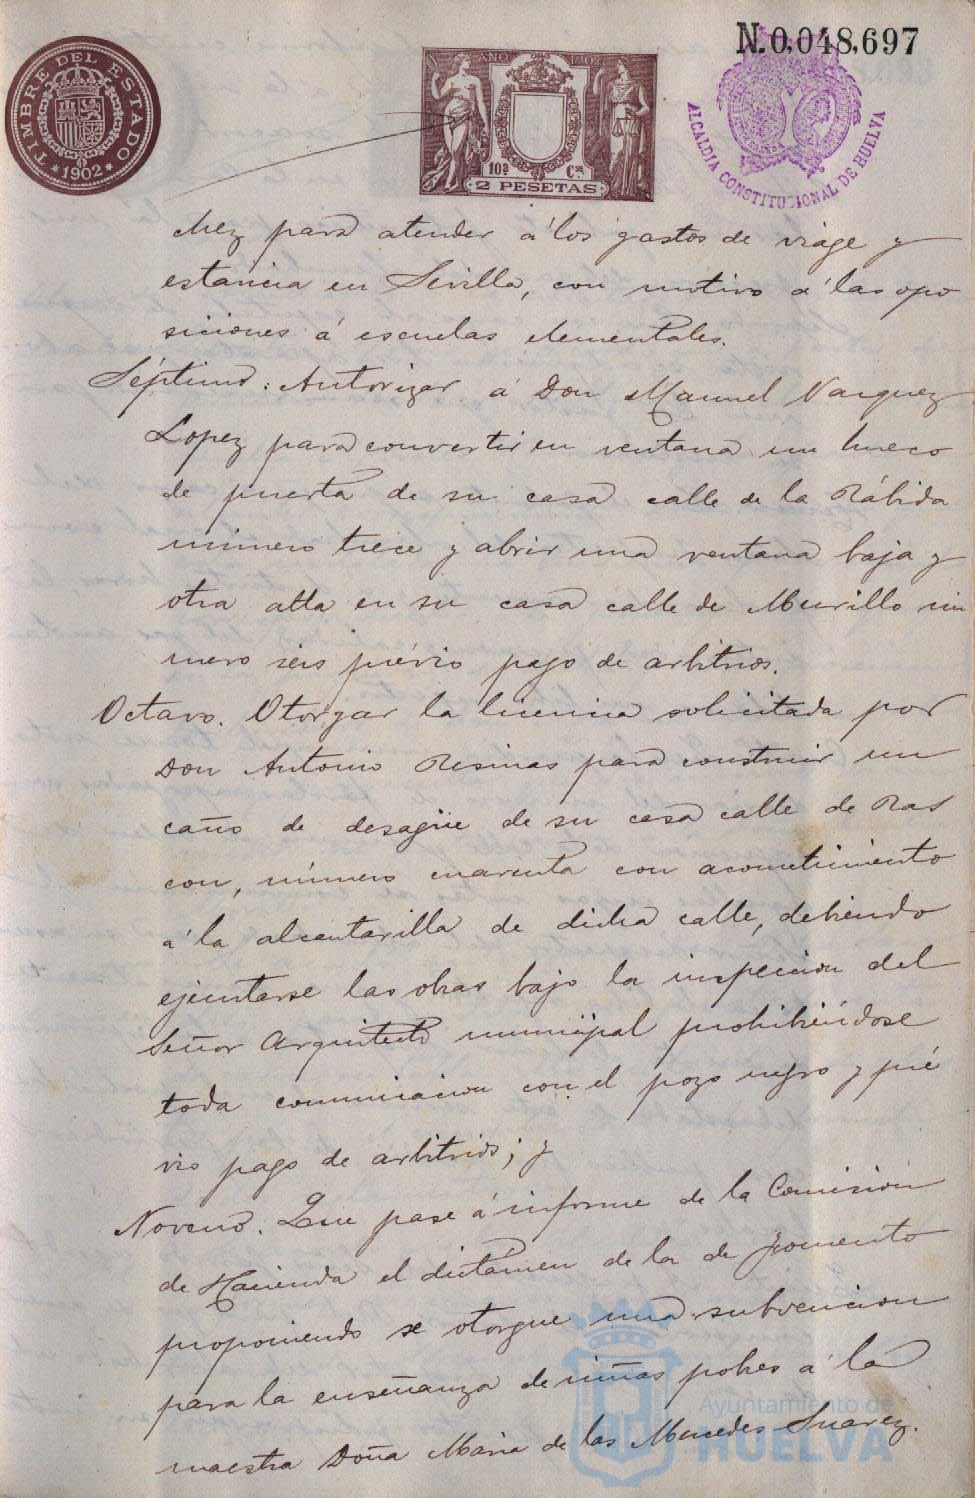 N.0,048,697
TIMBRE DEL ESTADO
*1902*
AÑO 1902
10ª Cª
2 PESETAS
ALCALDIA CONSTITUCIONAL DE HUELVA
chez para atender á los gastos de viage y
estancia en Sevilla, con motivo á las opo
siciones á escuelas elementales.
Séptimo: Autorizar á Don Manuel Vazquez
Lopez para convertir en ventana un hueco
de puerta de su casa calle de la Rábida
número trece y abrir una ventana baja y
otra alta en su casa calle de Murillo nú
mero seis prévio pago de arbitrios.
Octavo. Otorgar la licencia solicitada por
Don Antonio Resinas para construir un
caño de desagüe de su casa calle de Ras
con, número cuarenta con acometimiento
á la alcantarilla de dicha calle, debiendo
ejecutarse las obras bajo la inspeccion del
Señor Arquitecto municipal prohibiéndose
toda comunicacion con el pozo negro y pré
vio pago de arbitrios; y
Noveno. Que pase á informe de la Comision
de Hacienda el dictámen de la de Fomento
proponiendo se otorgue una subvencion
para la enseñanza de niñas pobres á la
maestra Doña Maria de las Mercedes Suarez.
Ayuntamiento de
HUELVA